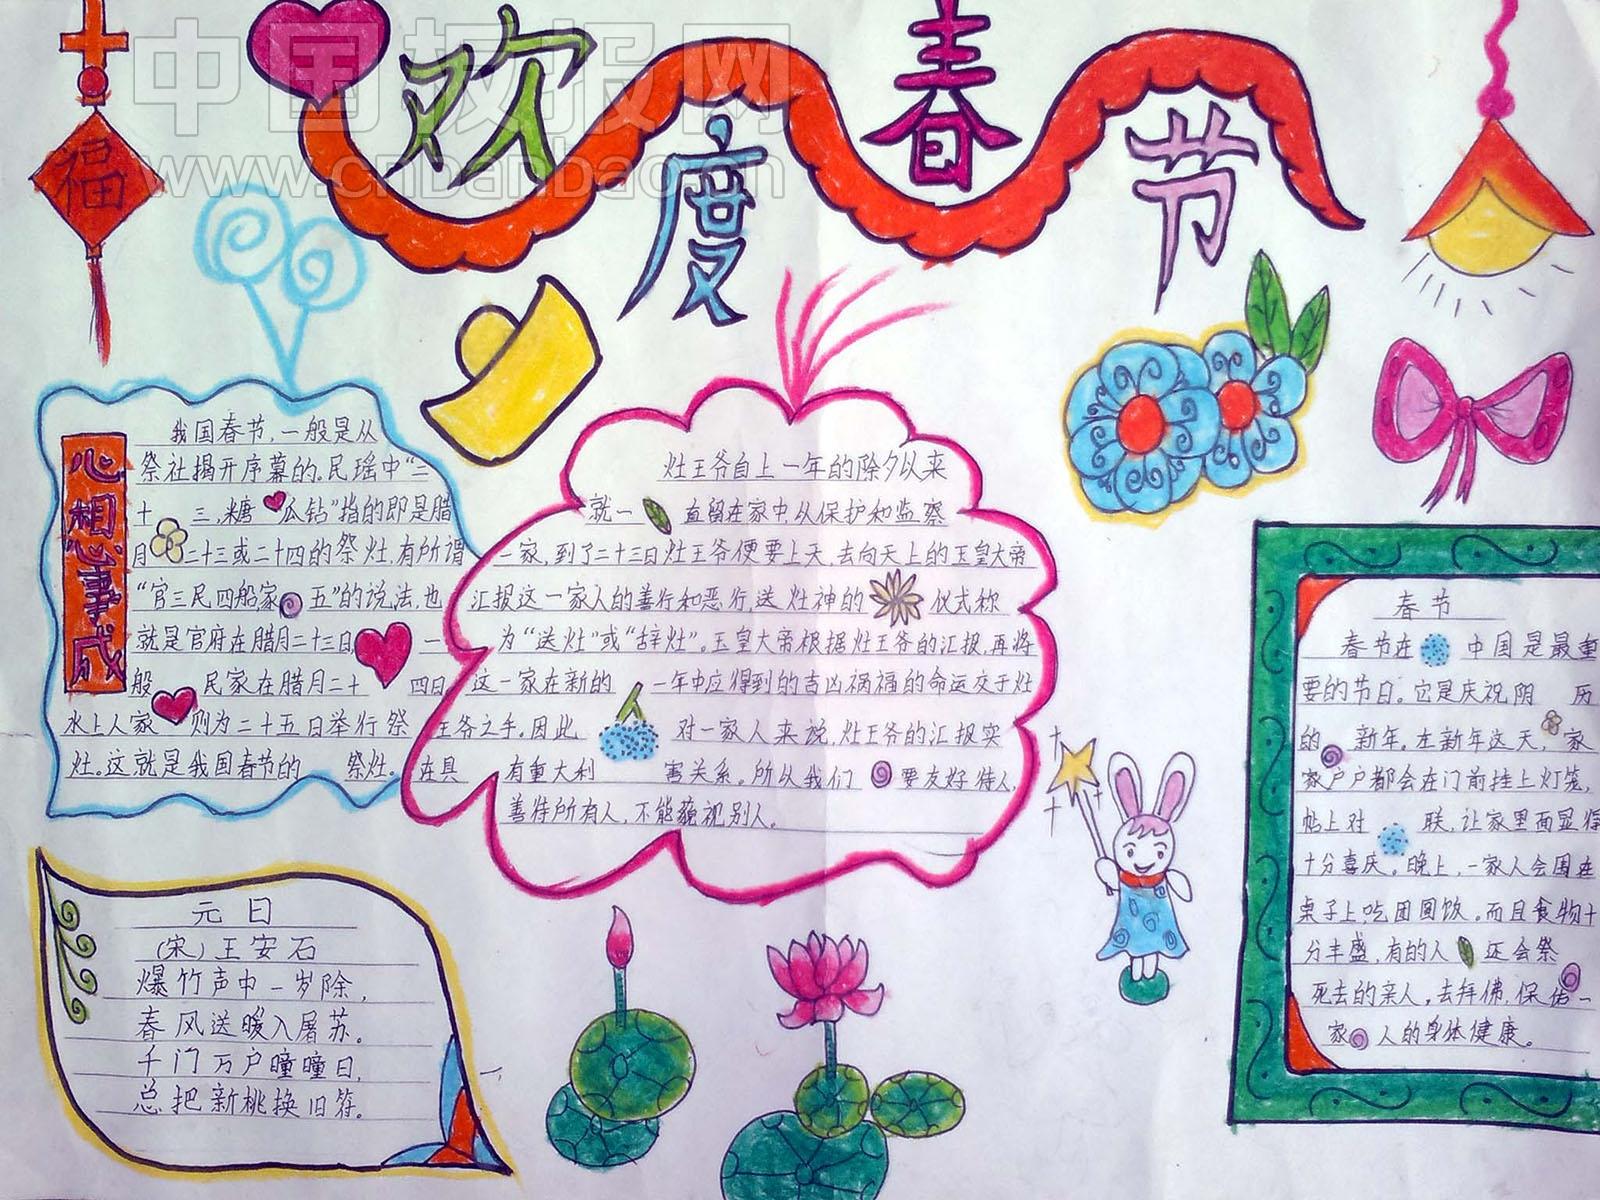 欢度春节
福
中国板报网
www.cnbanbao.cn
心想事成
我国春节,一般是从
祭社揭开序幕的。民瑶中“二
十三,糖瓜钻”指的即是腊
月二十三或二十四的祭灶,有所谓
“官三民四船家五”的说法,也
就是官府在腊月二十三日,一
般民家在腊月二十四日,
水上人家则为二十五日举行祭
灶。这就是我国春节的祭灶。
灶王爷自上一年的除夕以来
就一直留在家中,以保护和监察
一家,到了二十三日灶王爷便要上天,去向天上的玉皇大帝
汇报这一家人的善行和恶行,送灶神的仪式称
为“送灶”或“辞灶”。玉皇大帝根据灶王爷的汇报,再将
这一家在新的一年中应得到的吉凶祸福的命运交于灶
王爷之手。因此,对一家人来说,灶王爷的汇报实
在具有重大利害关系。所以我们要友好待人,
善待所有人,不能藐视别人。
元日
(宋)王安石
爆竹声中一岁除,
春风送暖入屠苏。
千门万户曈曈日,
总把新桃换旧符。
春节
春节在中国是最重
要的节日。它是庆祝阴历
的新年。在新年这天,家
家户户都会在门前挂上灯笼,
帖上对联,让家里面显得
十分喜庆。晚上,一家人会围在
桌子上吃团圆饭。而且食物十
分丰盛,有的人还会祭
死去的亲人。去拜佛,保佑一
家人的身体健康。